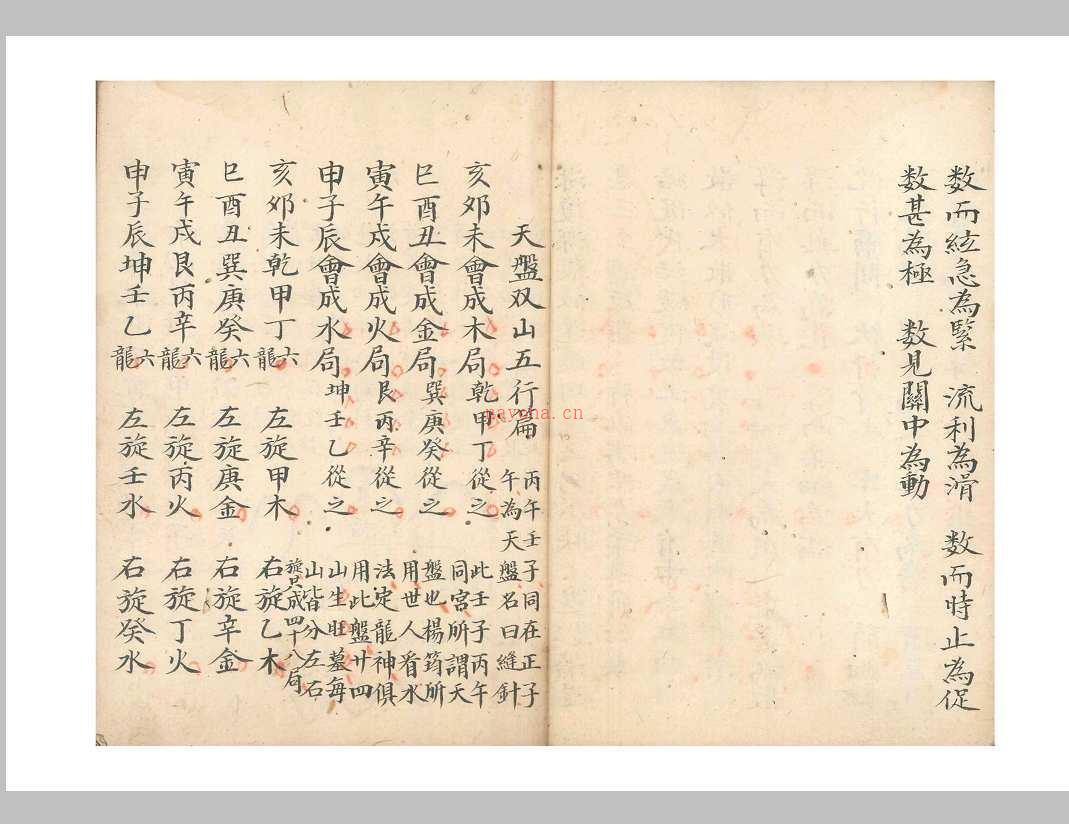 数而絃急為緊 流利為滑 数而時止為促
数甚為極 数見關中為動
天盤双山五行篇 丙午壬子同在正子
午為天盤名曰縫針
亥夘未會成木局乾甲丁從之 此壬子丙午
同宮所謂天
巳酉丑會成金局巽庚癸從之 盤也楊筠所
用世人看水
寅午戌會成火局艮丙辛從之 法定龍神俱
用此盤廿四
申子辰會成水局坤壬乙從之 山生旺墓每
山皆分左右
旋只成四十八局
亥夘未乾甲丁六龍 左旋甲木 右旋乙木
巳酉丑巽庚癸六龍 左旋庚金 右旋辛金
寅午戌艮丙辛六龍 左旋丙火 右旋丁火
申子辰坤壬乙六龍 左旋壬水 右旋癸水